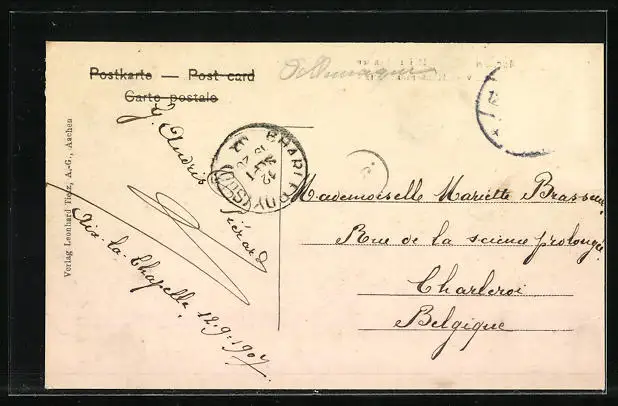 Postkarte — Post card
Carte postale
Allemagne
CHARLEROY
12
SEPT
Verlag Leonhard Tietz, A.-G., Aachen
Aix-la-Chapelle, 12.9.1907
Mademoiselle Mariette Brasseur
Rue de la science prolongée
Charleroi
Belgique